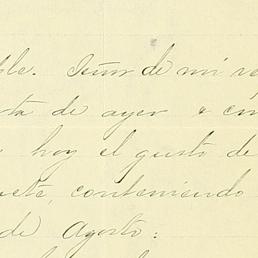 ble. Señor de mi re
ta de ayer e
hoy el gusto de
ete, conteniendo
de Agosto: